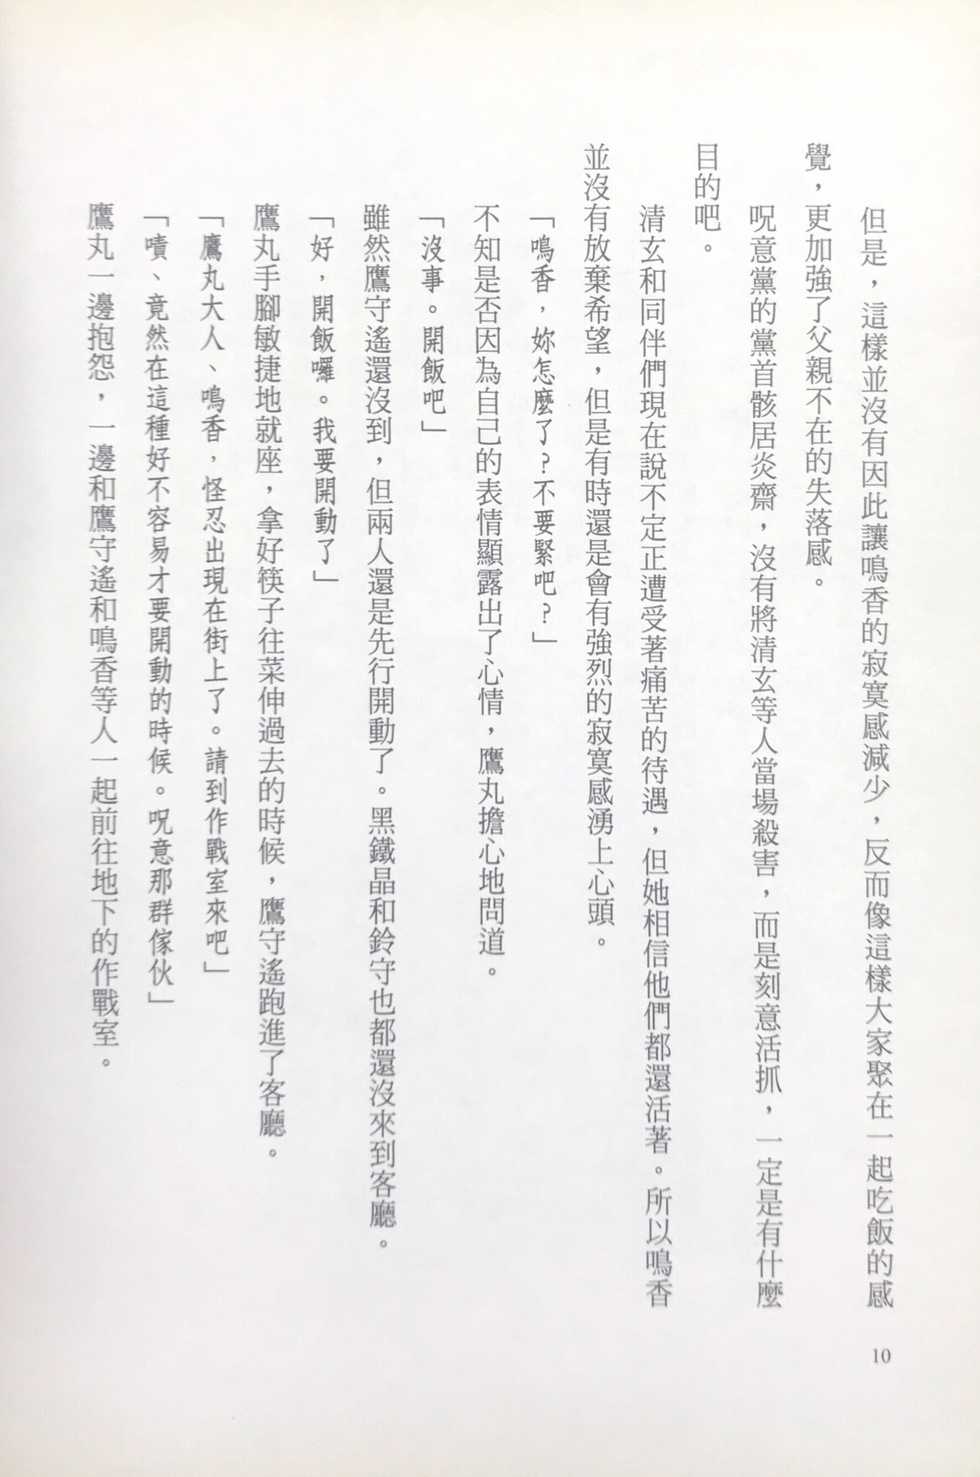 但是，這樣並沒有因此讓鳴香的寂寞感減少，反而像這樣大家聚在一起吃飯的感
覺，更加強了父親不在的失落感。
呪意黨的黨首骸居炎齋，沒有將清玄等人當場殺害，而是刻意活抓，一定是有什麼
目的吧。
清玄和同伴們現在說不定正遭受著痛苦的待遇，但她相信他們都還活著。所以鳴香
並沒有放棄希望，但是有時還是會有強烈的寂寞感湧上心頭。
「鳴香，妳怎麼了？不要緊吧？」
不知是否因為自己的表情顯露出了心情，鷹丸擔心地問道。
「沒事。開飯吧」
雖然鷹守遙還沒到，但兩人還是先行開動了。黑鐵晶和鈴守也都還沒來到客廳。
「好，開飯囉。我要開動了」
鷹丸手腳敏捷地就座，拿好筷子往菜伸過去的時候，鷹守遙跑進了客廳。
「鷹丸大人、鳴香，怪忍出現在街上了。請到作戰室來吧」
「嘖、竟然在這種好不容易才要開動的時候。呪意那群傢伙」
鷹丸一邊抱怨，一邊和鷹守遙和鳴香等人一起前往地下的作戰室。
10